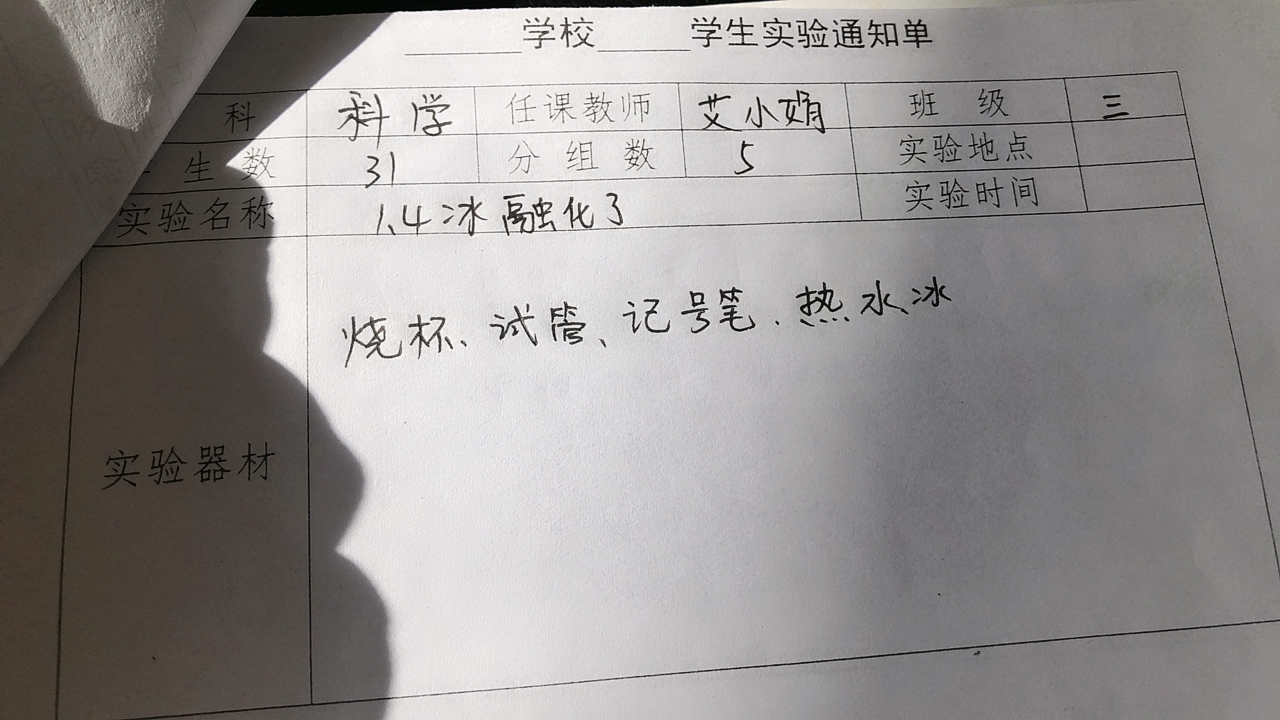 ______学校_____学生实验通知单
科 科学 任课教师 艾小娟 班 级 三
生 数 31 分 组 数 5 实验地点
实验名称 1.4冰融化了 实验时间
实验器材 烧杯、试管、记号笔、热水、冰